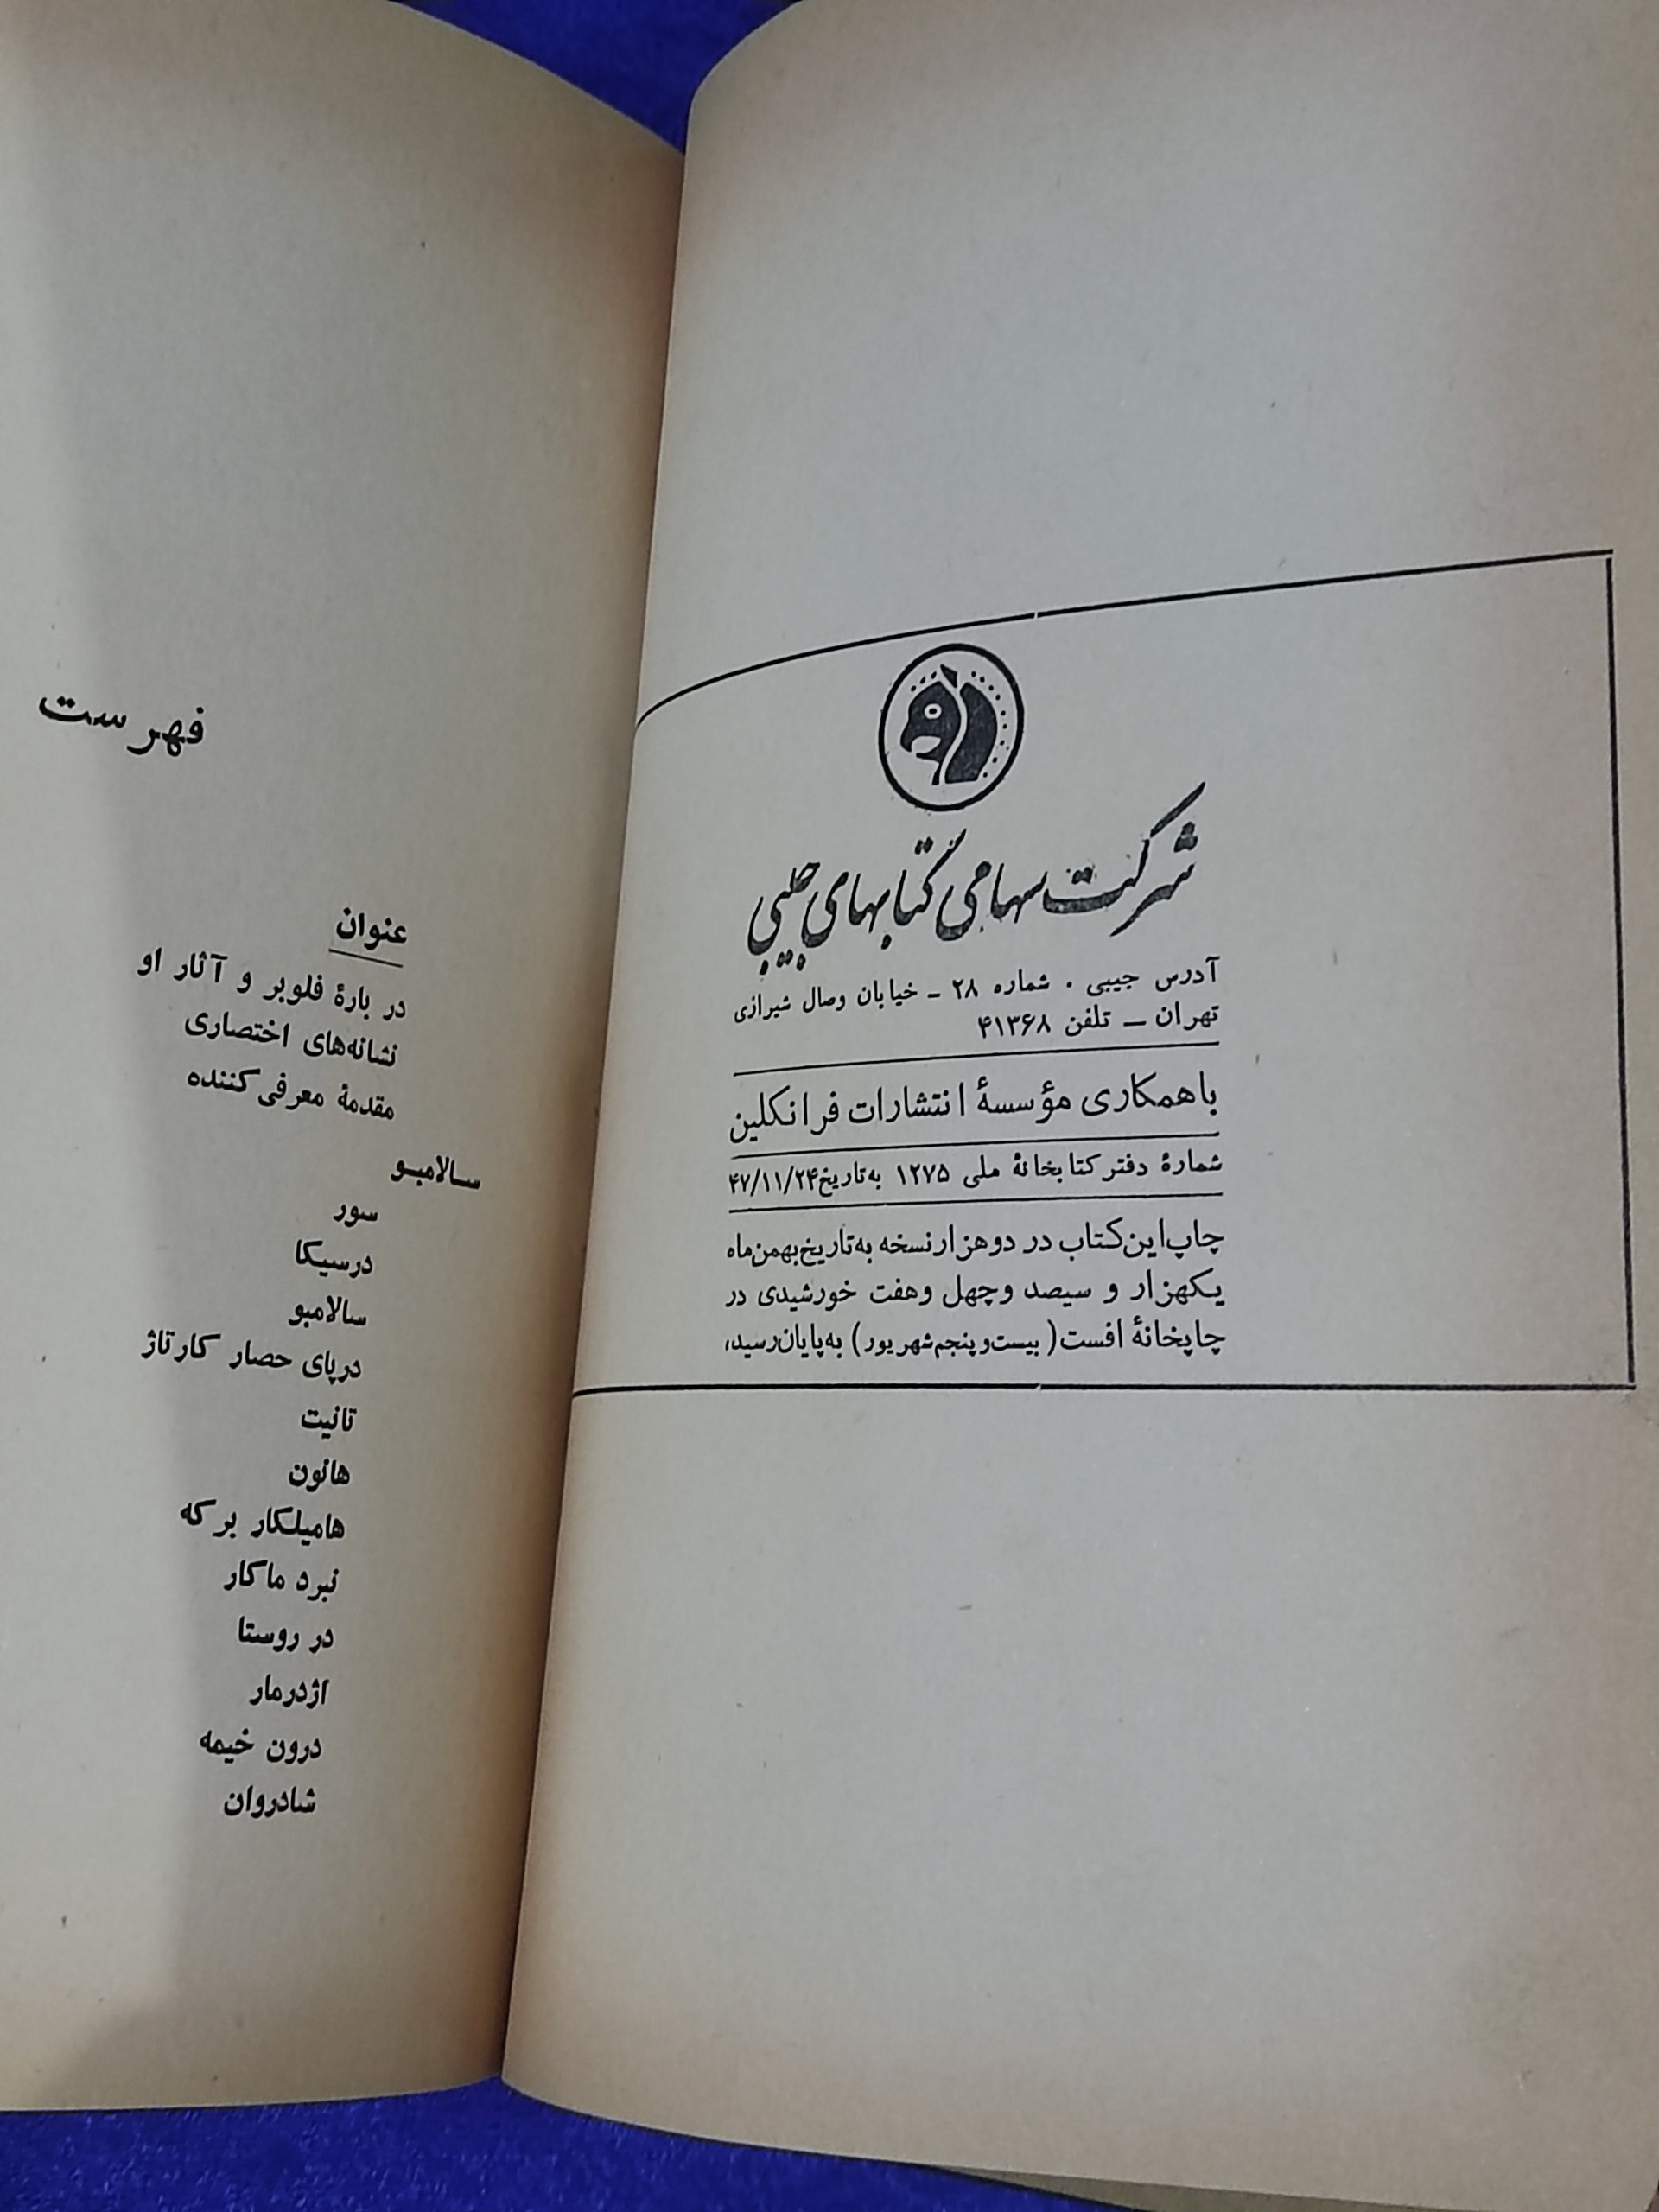 شرکت سهامی کتابهای جیبی
آدرس جیبی . شماره ۲۸ - خیابان وصال شیرازی
تهران — تلفن ۴۱۳۶۸
باهمکاری مؤسسهٔ انتشارات فرانکلین
شمارهٔ دفتر کتابخانهٔ ملی ۱۲۷۵ به‌تاریخ ۴۷/۱۱/۲۴
چاپ‌این‌کتاب در دوهزارنسخه به‌تاریخ‌بهمن‌ماه
یکهزار و سیصد وچهل وهفت خورشیدی در
چاپخانهٔ افست (بیست‌وپنجم‌شهریور) به‌پایان‌رسید،
فهرست
عنوان
در بارهٔ فلوبر و آثار او
نشانه‌های اختصاری
مقدمهٔ معرفی‌کننده
سالامبو
سور
درسیکا
سالامبو
درپای حصار کارتاژ
تانیت
هانون
هامیلکار برکه
نبرد ماکار
در روستا
اژدرمار
درون خیمه
شادروان